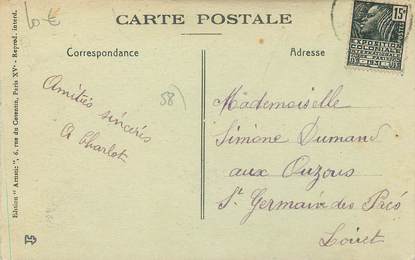 10 €
CARTE POSTALE
Correspondance
Adresse
15c
POSTES
EXPOSITION
COLONIALE
INTERNATIONALE
PARIS 1931
58
Amitiés sincères
A Charlot
Mademoiselle
Simone Dumand
aux Ouzous
St Germain des Prés
Loiret
Edition "Armix", 6, rue du Commerce, Paris XVe - Reprod. interd.